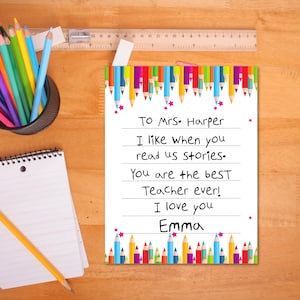 To Mrs. Harper
I like when you
read us stories.
You are the best
Teacher ever!
I love you
Emma